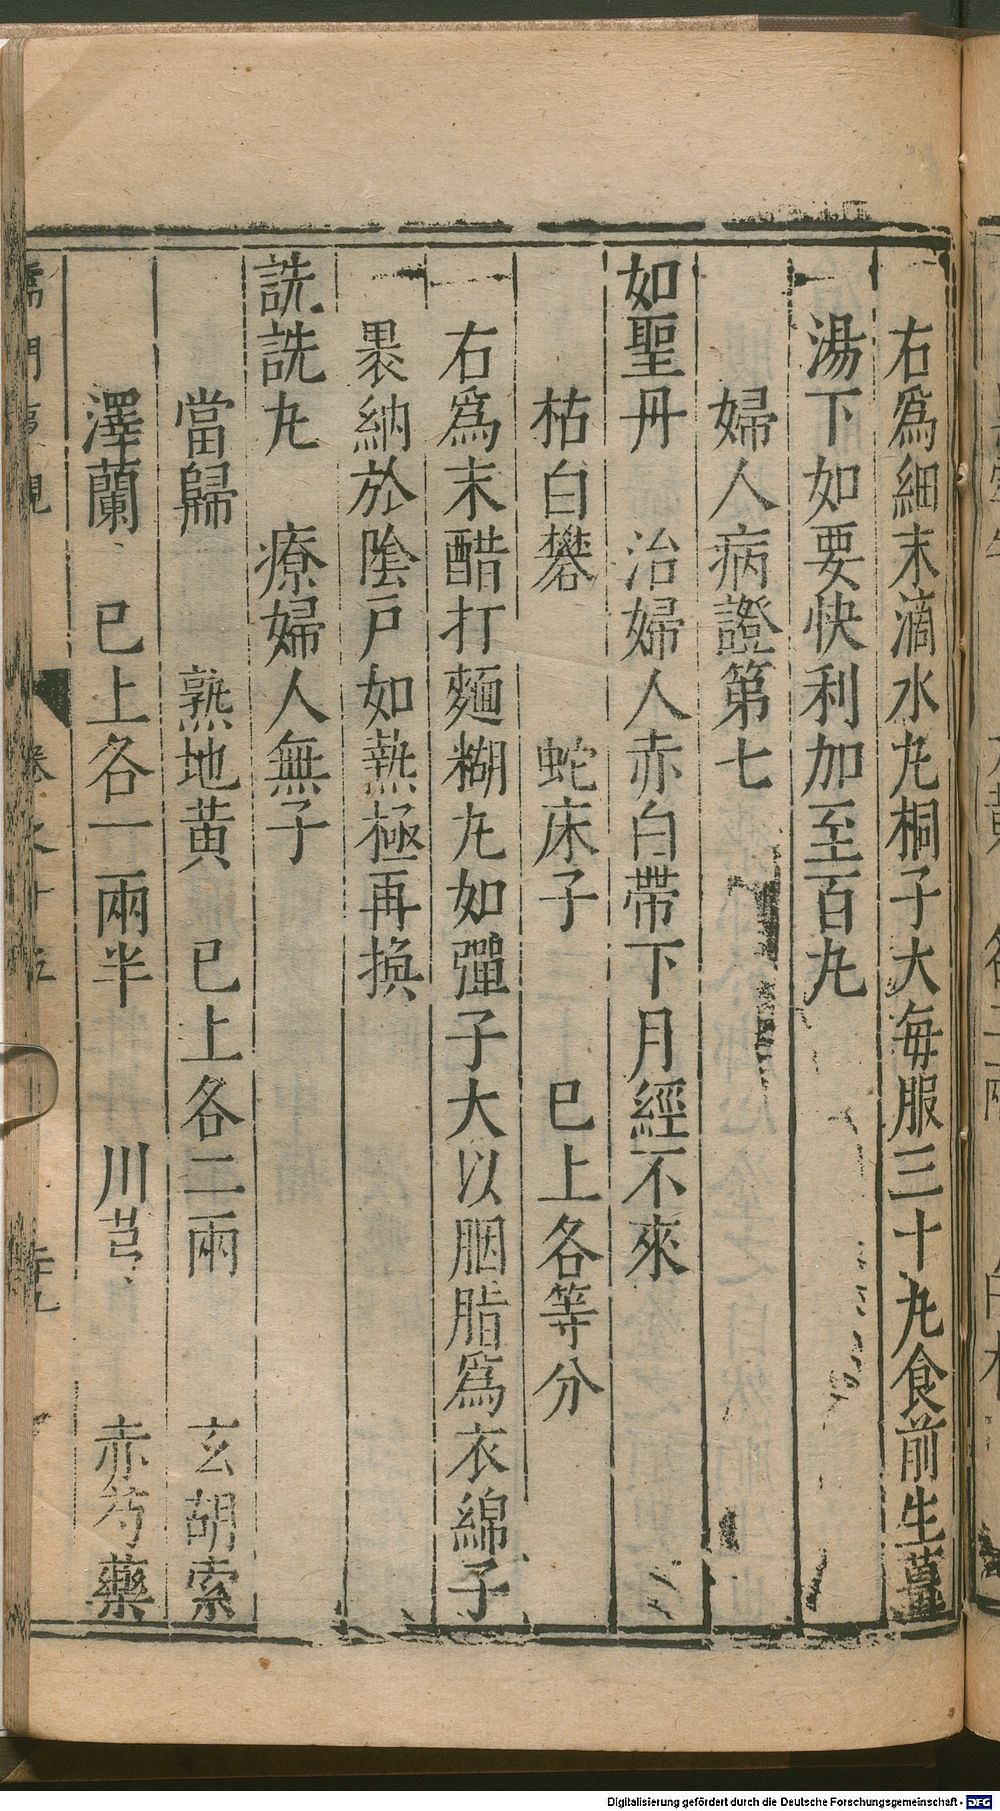 右爲細末滴水丸桐子大每服三十丸食前生薑
湯下如要快利加至百丸
婦人病證第七
如聖丹　治婦人赤白帶下月經不來
枯白礬　蛇床子　已上各等分
右爲末醋打麵糊丸如彈子大以胭脂爲衣綿子
裹納於陰戶如熱極再換
詵詵丸　療婦人無子
當歸　熟地黄　已上各二兩　玄胡索
澤蘭　已上各一兩半　川芎　赤芍藥
儒門事親　卷之十五
Digitalisierung gefördert durch die Deutsche Forschungsgemeinschaft - DFG